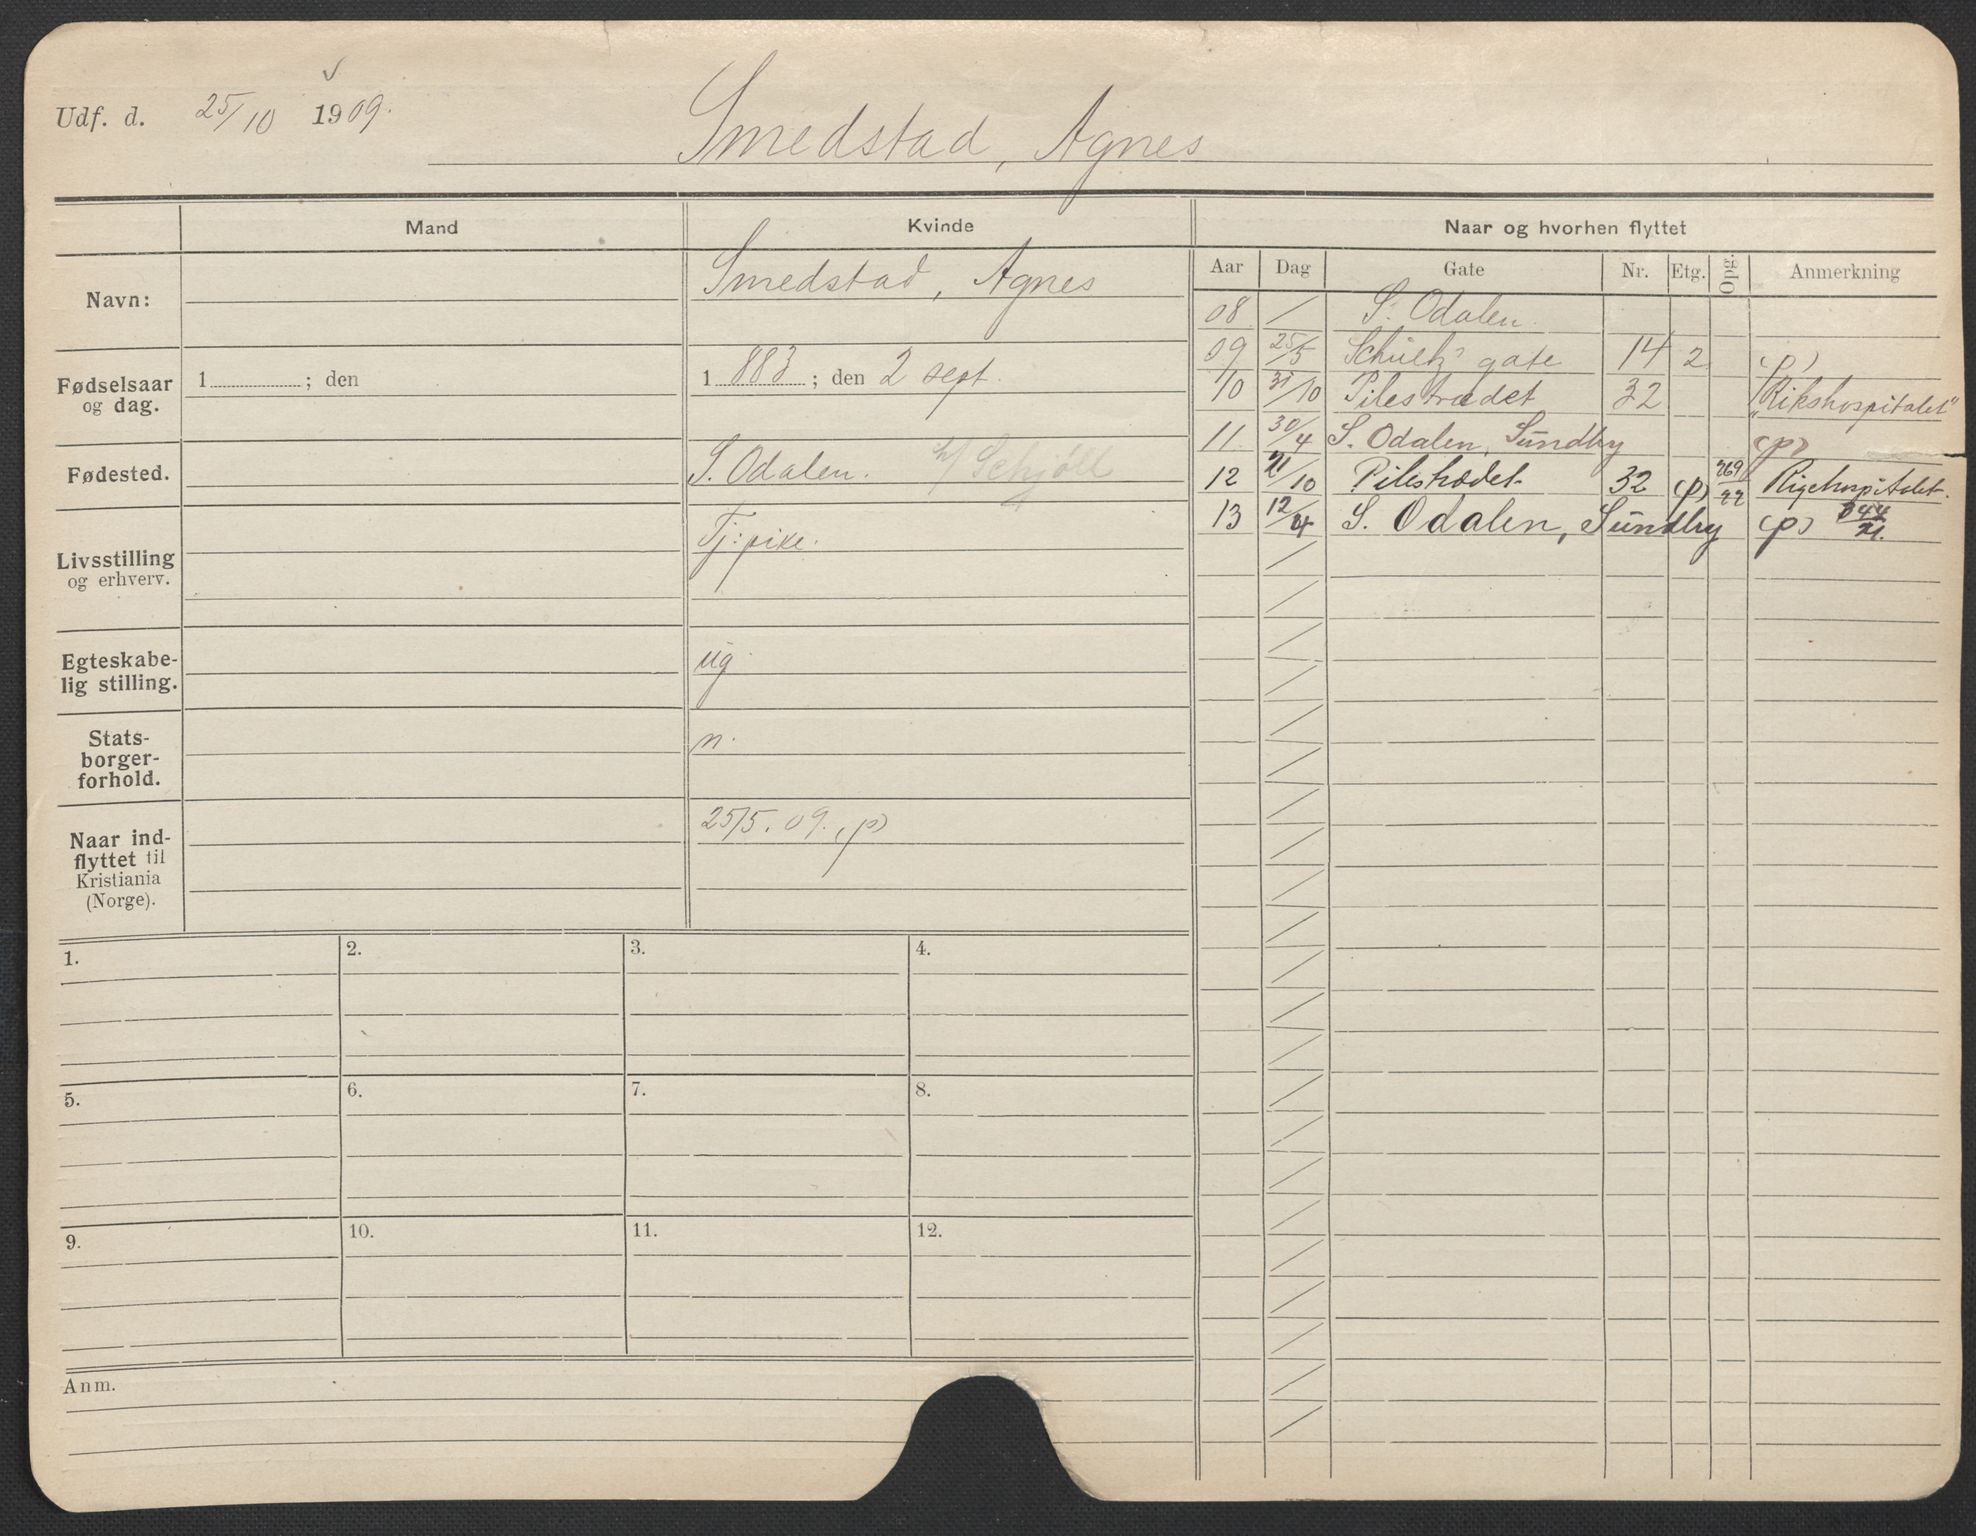 Udf. d. 25/10 1909.
Smedstad, Agnes
Mand
Kvinde
Naar og hvorhen flyttet
Aar Dag Gate Nr. Etg. Opg. Anmerkning
Navn:
Smedstad, Agnes
Fødselsaar
og dag.
1 ; den
1 883 ; den 2 sept.
Fødested.
S. Odalen. h/ Schjøll
Livsstilling
og erhverv.
Tj: pike.
Egteskabe-
lig stilling.
ug.
Stats-
borger-
forhold.
n.
Naar ind-
flyttet til
Kristiania
(Norge).
25/5. 09. (p)
08 / S. Odalen.
09 25/5 Schultz' gate 14 2 (p)
10 31/10 Pilestrædet 32 "Rikshospitalet"
11. 30/4 S. Odalen, Sundby (p)
12 21/10 Pilestrædet 32 (p) 269/22 Rigshospitalet.
13 12/4 S. Odalen, Sundby (p)
1. 2. 3. 4.
5. 6. 7. 8.
9. 10. 11. 12.
Anm.